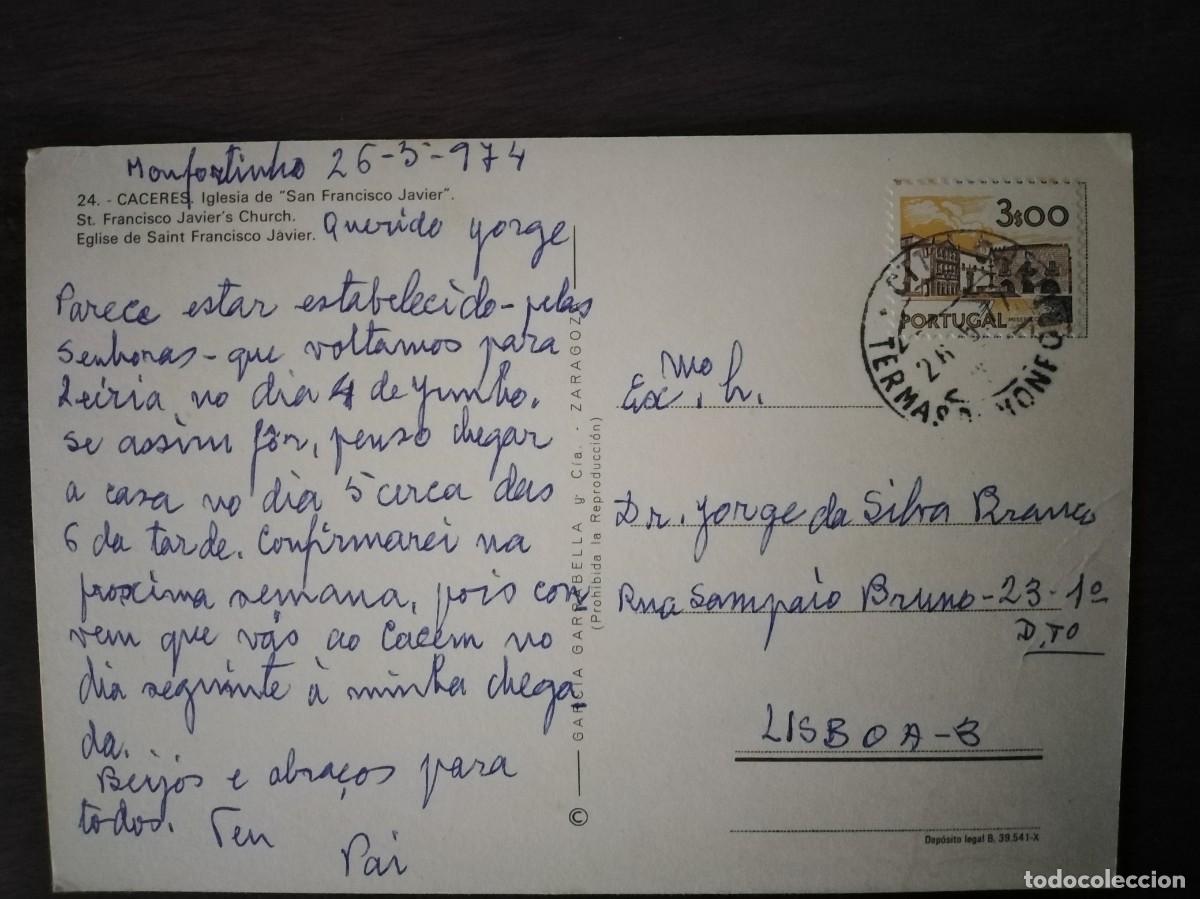 Monfortinho 26-5-974
24. - CACERES. Iglesia de "San Francisco Javier".
St. Francisco Javier's Church.
Eglise de Saint Francisco Jàvier.
Querido Jorge
Parece estar estabelecido - pelas
Senhoras - que voltamos para
Leiria no dia 4 de Junho.
Se assim fôr, penso chegar
a casa no dia 5 cerca das
6 da tarde. Confirmarei na
proxima semana, pois con
vem que vão ao Cacem no
dia seguinte à minha chega
da.
Beijos e abraços para
todos. Teu
Pai
© GARCIA GARRABELLA y Cía. - ZARAGOZA
(Prohibida la Reproducción)
3$00
PORTUGAL
TERMAS
26
Ex.mo
Dr. Jorge da Silva Branco
Rua Sampaio Bruno - 23 - 1º
D.TO
LISBOA - 3
Depósito legal B. 39.541-X
todocoleccion